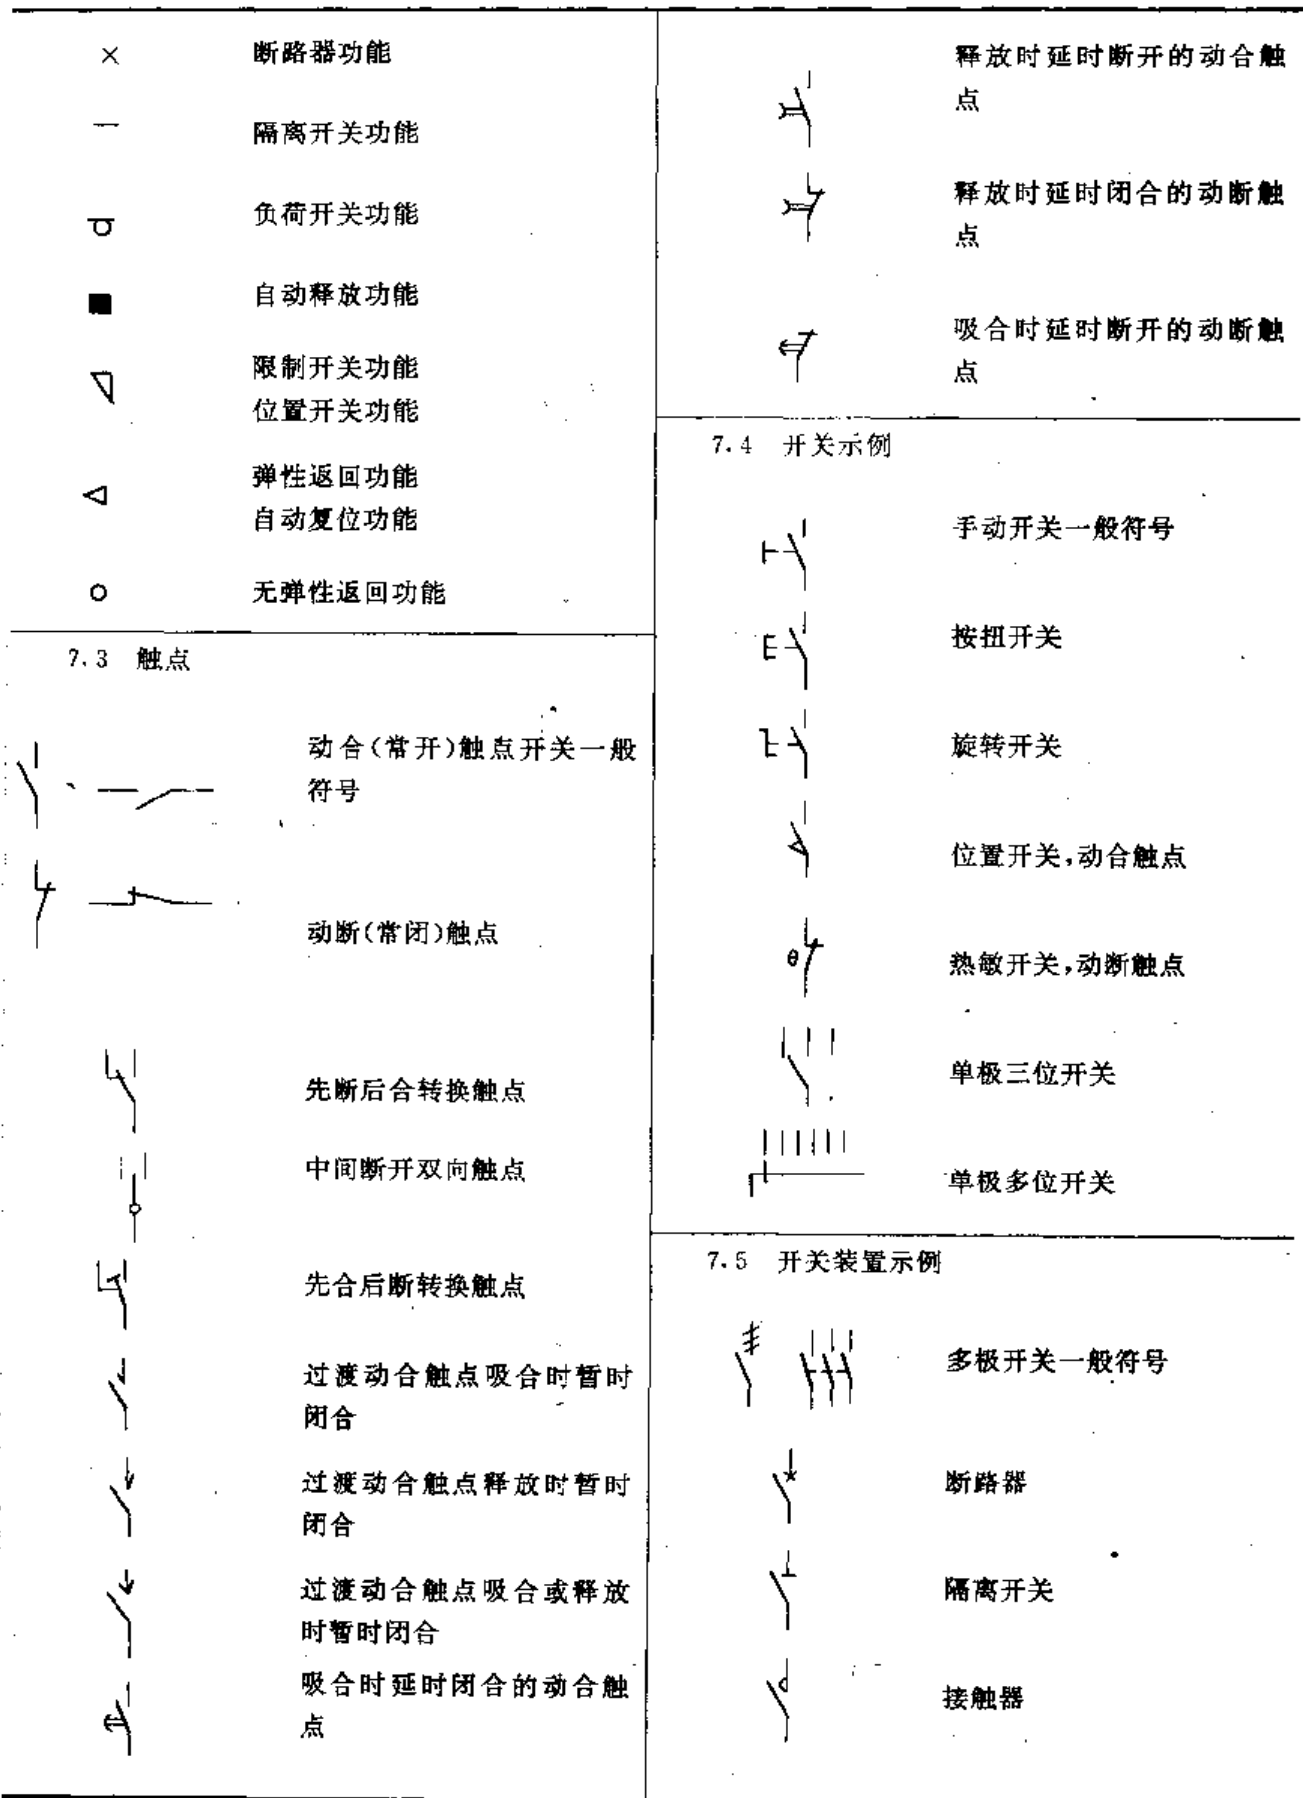 断路器功能
隔离开关功能
负荷开关功能
自动释放功能
限制开关功能
位置开关功能
弹性返回功能
自动复位功能
无弹性返回功能
7.3 触点
动合(常开)触点开关一般
符号
动断(常闭)触点
先断后合转换触点
中间断开双向触点
先合后断转换触点
过渡动合触点吸合时暂时
闭合
过渡动合触点释放时暂时
闭合
过渡动合触点吸合或释放
时暂时闭合
吸合时延时闭合的动合触
点
释放时延时断开的动合触
点
释放时延时闭合的动断触
点
吸合时延时断开的动断触
点
7.4 开关示例
手动开关一般符号
按扭开关
旋转开关
位置开关,动合触点
θ
热敏开关,动断触点
单极三位开关
单极多位开关
7.5 开关装置示例
多极开关一般符号
断路器
隔离开关
接触器